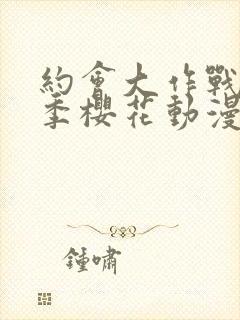 約會大作戰
季櫻花動漫
鍾嘯